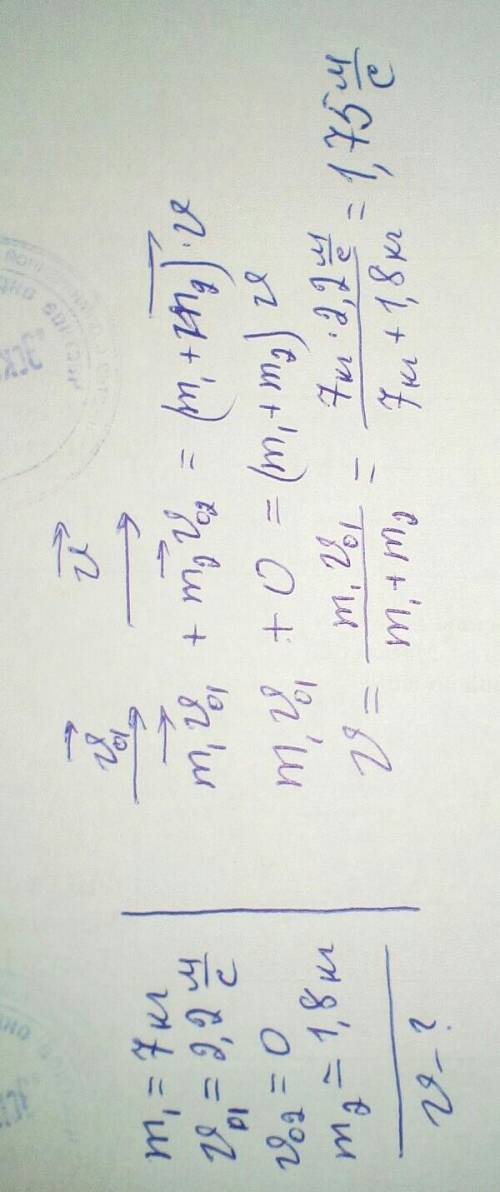 m₁ = 7 кг
v₀₁ = 2,2 м/с
v₀₂ = 0
m₂ = 1,8 кг
v - ?
v⃗₀₁ v⃗
m₁v⃗₀₁ + m₂v⃗₀₂ = (m₁ + m₂)·v⃗
m₁v₀₁ + 0 = (m₁ + m₂)v
v = m₁v₀₁/(m₁ + m₂) = (7кг · 2,2 м/с)/(7кг + 1,8 кг) = 1,75 м/с